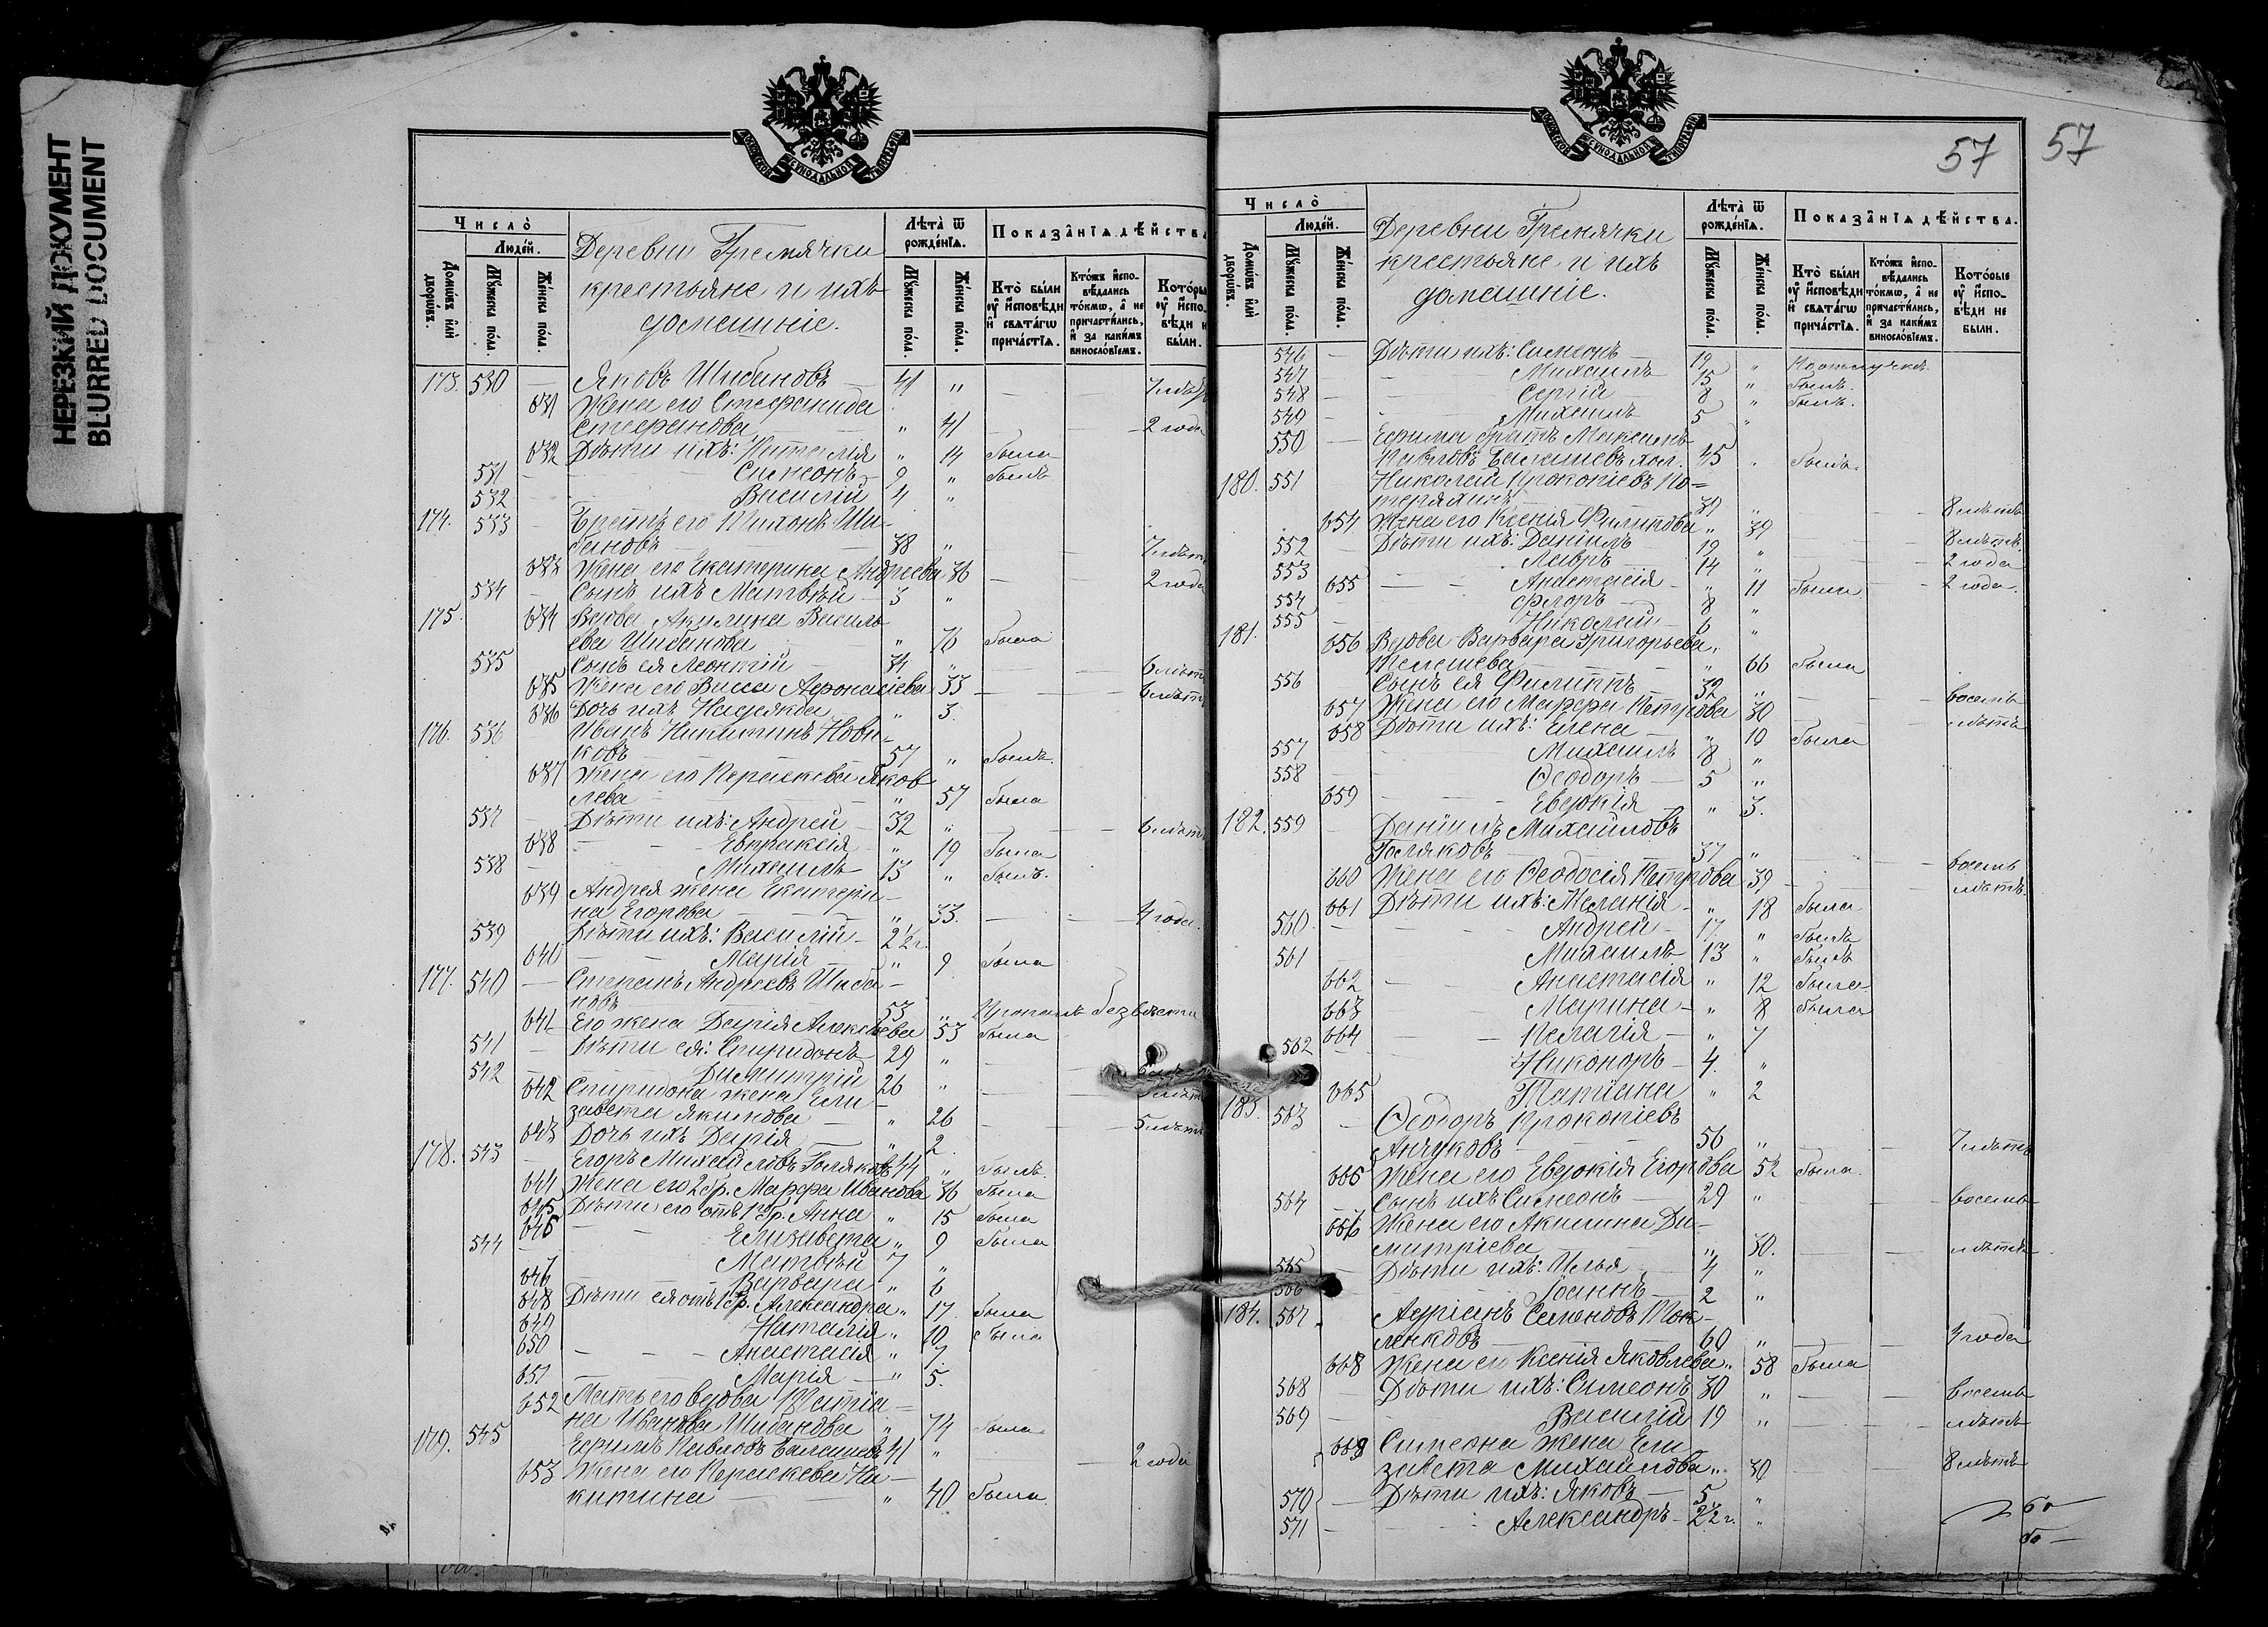 НЕРЕЗКИЙ ДОКУМЕНТ
BLURRED DOCUMENT
МОСКОВСКОЙ СѴНОДАЛЬНОЙ ТИПОГРАФІИ
Число̀
Люде́й.
Домѡ́въ и҆лѝ дворѡ́въ.
Мꙋ́жеска по́ла.
Же́нска по́ла.
Деревни Гремячки
крестьяне и ихъ
домашніе.
Лѣта̀ ѿ рожде́нїѧ.
Мꙋ́жеска по́ла.
Же́нска по́ла.
Показа̑нїѧ дѣ́йства
Кто̀ бы́ли ᲂу҆ и҆сповѣ́ди и҆ свѧта́гѡ прича́стїѧ.
Кто́жъ и҆спо-вѣ́дались то́кмѡ, а҆ не причасти́лись, и҆ за каки́мъ винослові́емъ.
Кото́ры ᲂу҆ и҆спо-вѣ́ди н бы́ли.
173. 530 — Яковъ Шибановъ — 41 „ — — 7 лѣтъ
631 Жена его Стефанида
Стефанова — „ 41 — — 2 года
632 Дѣти ихъ: Наталія „ 14 была
531 — Симеонъ — 9 „ былъ
532 — Василій 4 „
174. 533 — Братъ его Тихонъ Ши-
бановъ — 38 „ — 7 лѣтъ
633 Жена его Екатерина Андреева 36 — 2 года
534 — Сынъ ихъ Матвѣй — 3 „
175. 634 Вдова Акилина Василь
ева Шибанова — „ 76 была
535 Сынъ ея Леонтій — 34 „ — — 6 лѣтъ
635 Жена его Васса Афонасіева 33 — — 6 лѣтъ
636 Дочь ихъ Надежда — „ 3.
176. 536 Иванъ Никитинъ Нови-
ковъ — 57 „ былъ.
637 Жена его Параскева Яков
лева — „ 57 была
537 — Дѣти ихъ: Андрей — 32 „ — — 6 лѣтъ
638 — Евпраксія — „ 19 была
538 — Михаилъ 13 „ былъ.
639 Андрея жена Екатери-
на Егорова — „ 33. — — 4 года.
539 Дѣти ихъ: Василій — 2½ г.
640 — Марія — „ 9 была
177. 540 — Степанъ Андреевъ Шиба-
новъ 53 „ Пропалъ безъ вѣсти
641 Его жена Дарія Алексѣева 53 была
541 — Дѣти ея: Спиридонъ — 29 „
542 — Димитрій 26 „
642 Спиридона жена Ели-
завета Якимова — „ 26 — 5 лѣтъ
643 Дочь ихъ Дарія — „ 2.
178. 543 — Егоръ Михайловъ Голяковъ 44 „ былъ.
644 Жена его 2 бр. Марфа Иванова 36 была
645 Дѣти его отъ 1го бр. Анна „ 15 была
646 — Елизавета „ 9 была
544 — Матвѣй 7 „
646 Варвара „ 6
648 Дѣти ея отъ 1 бр. Александра „ 17. была
649 Наталія „ 10 была
650 — Анастасія „ 7.
651 — Марія — „ 5.
652 Мать его вдова Татіа-
на Иванова Шибанова „ 74 была.
179. 545 Ефимъ Павловъ Балашевъ 41 „ — 2 года
653 Жена его Параскева Ни-
китина — „ 40 была.
57 57
МОСКОВСКОЙ СѴНОДАЛЬНОЙ ТИПОГРАФІИ
Число̀
Люде́й.
Домѡ́въ и҆лѝ дворѡ́въ.
Мꙋ́жеска по́ла.
Же́нска по́ла.
Деревни Гремячки
крестьяне и ихъ
домашніе.
Лѣта̀ ѿ рожде́нїѧ.
Мꙋ́жеска по́ла.
Же́нска по́ла.
Показа̑нїѧ дѣ́йства.
Кто̀ бы́ли ᲂу҆ и҆сповѣ́ди и҆ свѧта́гѡ прича́стїѧ.
Кто́жъ и҆спо-вѣ́дались то́кмѡ, а҆ не причасти́лись, и҆ за каки́мъ винослові́емъ.
Кото́рые ᲂу҆ и҆спо-вѣ́ди не бы́ли.
546 — Дѣти ихъ: Симеонъ — 19 „
547 — Михаилъ 15 „ былъ.
548 — Сергій — 8 „ былъ.
549 — Михаилъ 5 „
550 — Ефима братъ Максимъ
Павловъ Балашевъ хол. 45 „ былъ.
180. 551 Николай Прокопіевъ По-
теряхинъ — 39 „ — — 8 лѣтъ
654 Жена его Ксенія Филиппова „ 39 — 8 лѣтъ.
552 — Дѣти ихъ: Даніилъ 19 „ — 2 года
553 Лавръ — 14 „ — 2 года.
655 — Анастасія — „ 11 была
554 Флоръ — 8 „
555 — Николай — 6 „
181. 656 Вдова Варвара Григорьева
Телешева — „ 66 была
556 Сынъ ея Филиппъ 32 „ — восемь
657 Жена его Марфа Петрова 30 — лѣтъ
658 Дѣти ихъ: Елена — „ 10 была
557 — Михаилъ 8 „
558 — Ѳеодоръ — 5 „
659 — Евдокія „ 3.
182. 559 — Даніилъ Михайловъ
Голяковъ — 37 „ — восемь
660 Жена его Ѳеодосія Петрова 39 — лѣтъ
661 Дѣти ихъ: Меланія — „ 18 была
560 — Андрей — 17 „ былъ
561 — Михаилъ 13 „ былъ
662 — Анастасія „ 12 была
663 — Марина — „ 8 была
664 — Пелагія — „ 7
562 — Никоноръ — 4. „
665 Татіана „ 2
183. 563 — Ѳеодоръ Прокопіевъ
Анчуковъ — 56 „ — 7 лѣтъ
666 Жена его Евдокія Егорова 52 была.
564 — Сынъ ихъ Симеонъ — 29 „ восемь
667 Жена его Акилина Ди-
митріева — „ 30. — лѣтъ.
565 — Дѣти ихъ: Илья 4 „
566 — Іоаннъ — 2 „
184. 567 Адріанъ Семеновъ Мок-
ленковъ — 60 „ — 4 года
668 Жена его Ксенія Яковлева „ 58 была
568 — Дѣти ихъ: Симеонъ 30 „ — восемь
569 — Василій 19 „ — лѣтъ
669 Симеона жена Ели
завета Михайлова „ 30 — 8 лѣтъ
570 — Дѣти ихъ: Яковъ — 5 „
571 — Александръ — 2½ г. „